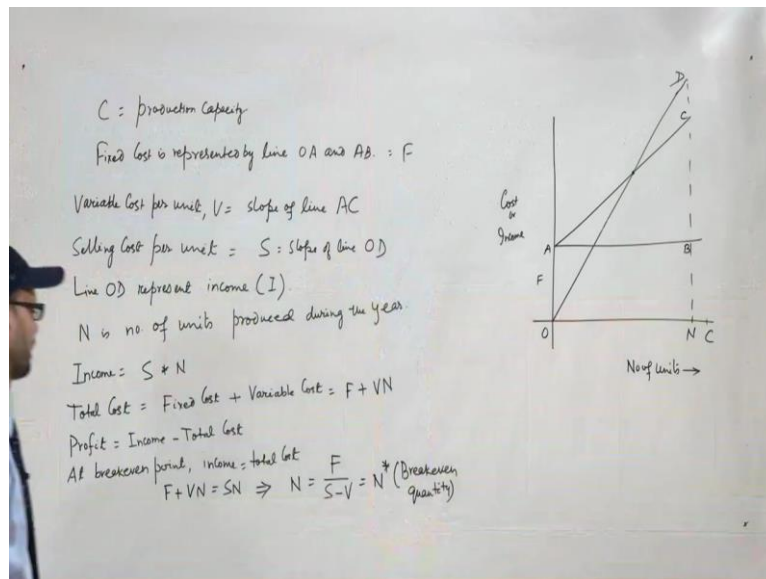 C = production Capacity
Fixed Cost is represented by line OA and AB. = F
Variable Cost per unit, V = slope of line AC
Selling Cost per unit = S = slope of line OD
Line OD represent income (I).
N is no. of units produced during the year.
Income = S * N
Total Cost = Fixed Cost + Variable Cost = F + VN
Profit = Income - Total Cost
At breakeven point, income = total Cost
F + VN = SN ⇒ N = F / S-V = N* (Breakeven quantity)
D
C
Cost
or
Income
A
B
F
O
N C
No of units →